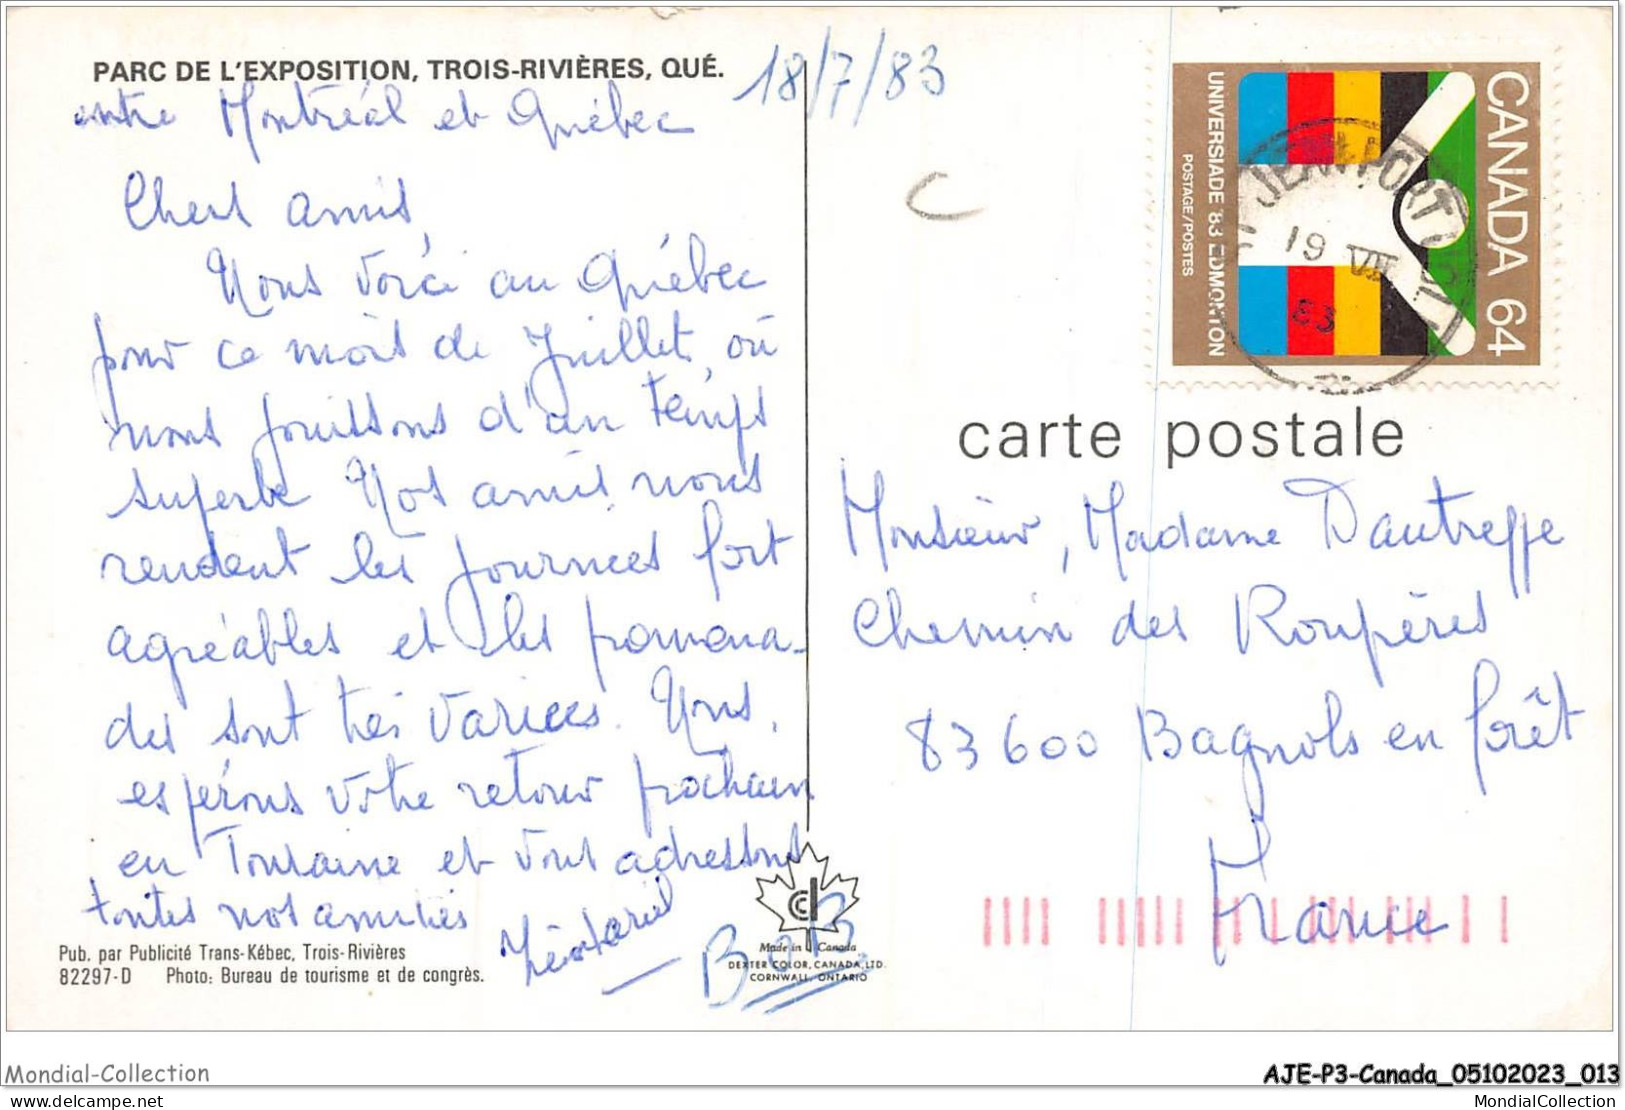 PARC DE L'EXPOSITION, TROIS-RIVIÈRES, QUÉ.
18/7/83
entre Montréal et Québec
Chers amis,
Nous voici au Québec
pour ce mois de Juillet, où
nous jouissons d'un temps
superbe Nos amis nous
rendent les journées fort
agréables et les promena-
des sont très variées. Nous
espérons votre retour prochain
en Touraine et vous adressons
toutes nos amitiés
BOB
Pub. par Publicité Trans-Kébec, Trois-Rivières
82297-D Photo: Bureau de tourisme et de congrès.
Made in Canada
DEXTER COLOR, CANADA, LTD.
CORNWALL, ONTARIO
CANADA 64
UNIVERSIADE '83 EDMONTON
POSTAGE/POSTES
19 VII
83
carte postale
Monsieur, Madame Dautreppe
Chemin des Roupères
83600 Bagnols en forêt
France
Mondial-Collection
AJE-P3-Canada_05102023_013
delcampe.net
MondialCollection